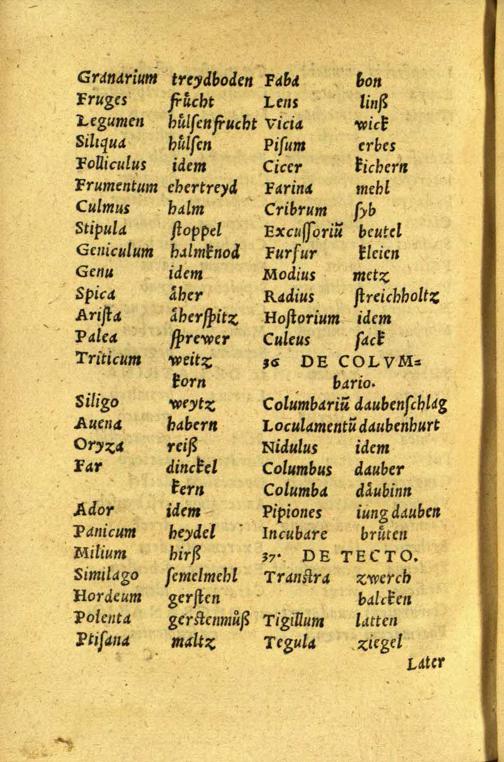 Granarium treydboden
Fruges fruͤcht
Legumen huͤlsenfrucht
Siliqua huͤlsen
Folliculus idem
Frumentum ehertreyd
Culmus halm
Stipula stoppel
Geniculum halmknod
Genu idem
Spica aͤher
Arista aͤherspitz
Palea sprewer
Triticum weitz
korn
Siligo weytz
Auena habern
Oryza reiß
Far dinckel
kern
Ador idem
Panicum heydel
Milium hirß
Similago semelmehl
Hordeum gersten
Polenta gerstenmuͦß
Ptisana maltz
Faba bon
Lens linß
Vicia wick
Pisum erbes
Cicer kichern
Farina mehl
Cribrum syb
Excussoriū beutel
Furfur kleien
Modius metz
Radius streichholtz
Hostorium idem
Culeus sack
36 DE COLVM=
bario.
Columbariū daubenschlag
Loculamentū daubenhurt
Nidulus idem
Columbus dauber
Columba daͤubinn
Pipiones iung dauben
Incubare bruͤten
37. DE TECTO.
Transtra zwerch
balcken
Tigillum latten
Tegula ziegel
Later